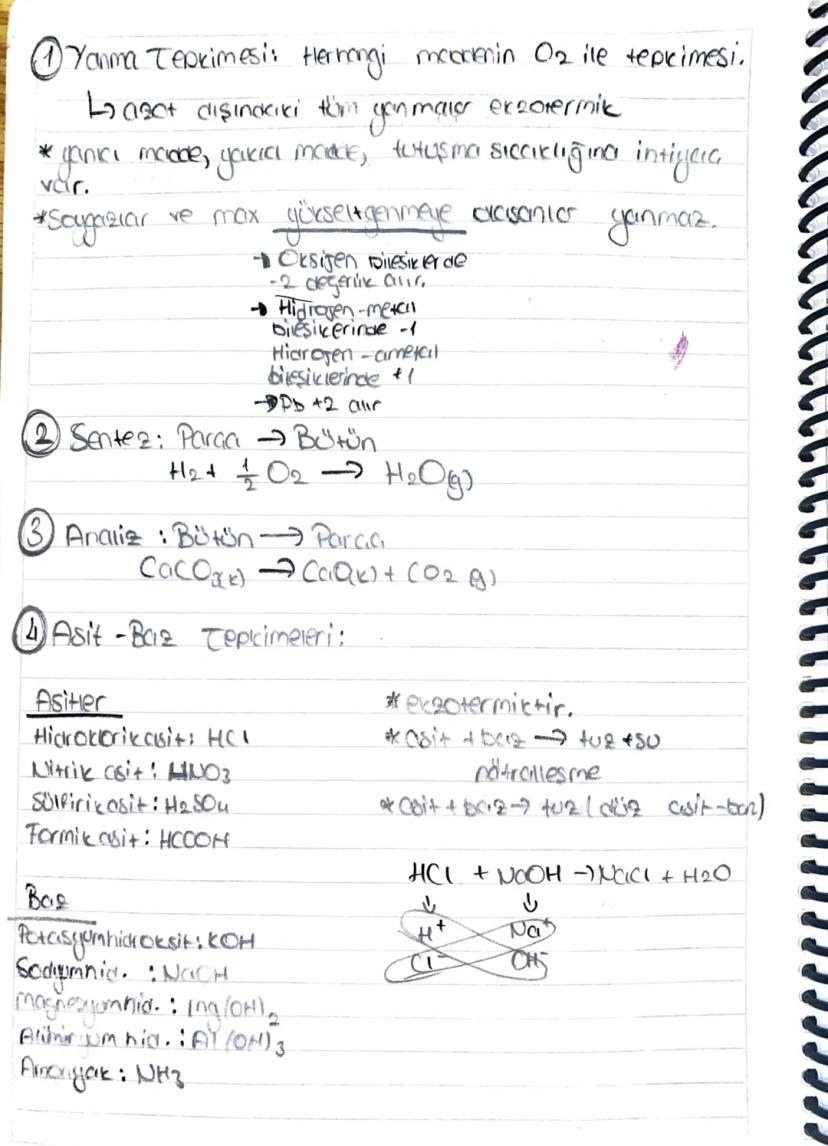 ① Yanma Tepkimesi: Herhangi maddenin O2 ile tepkimesi.
↳ azot dışındaki tüm yanmalar ekzotermik
* yanıcı madde, yakıcı madde, tutuşma sıcaklığına ihtiyacı
var.
* Soygazlar ve max yükseltgenmeye ulaşanlar yanmaz.
→ Oksijen bileşiklerde
-2 değerlik alır.
→ Hidrojen-metal
bileşiklerinde -1
Hidrojen-ametal
bileşiklerinde +1
→ Pb +2 alır
② Sentez: Parça → Bütün
H2 + 1/2 O2 → H2O(g)
③ Analiz: Bütün → Parça
CaCO3(k) → CaO(k) + CO2(g)
④ Asit-Baz Tepkimeleri:
Asitler
Hidroklorik asit: HCl
Nitrik asit: HNO3
Sülfirik asit: H2SO4
Formik asit: HCOOH
* ekzotermiktir.
* asit + baz → tuz + su
nötralleşme
* asit + baz → tuz (düz asit-baz)
HCl + NaOH → NaCl + H2O
↓ ↓
H+ Na+
Cl- OH-
Baz
Potasyumhidroksit: KOH
Sodyumhid. : NaOH
magnezyumhid. : mg(OH)2
Alüminyum hid. : Al(OH)3
Amonyak: NH3